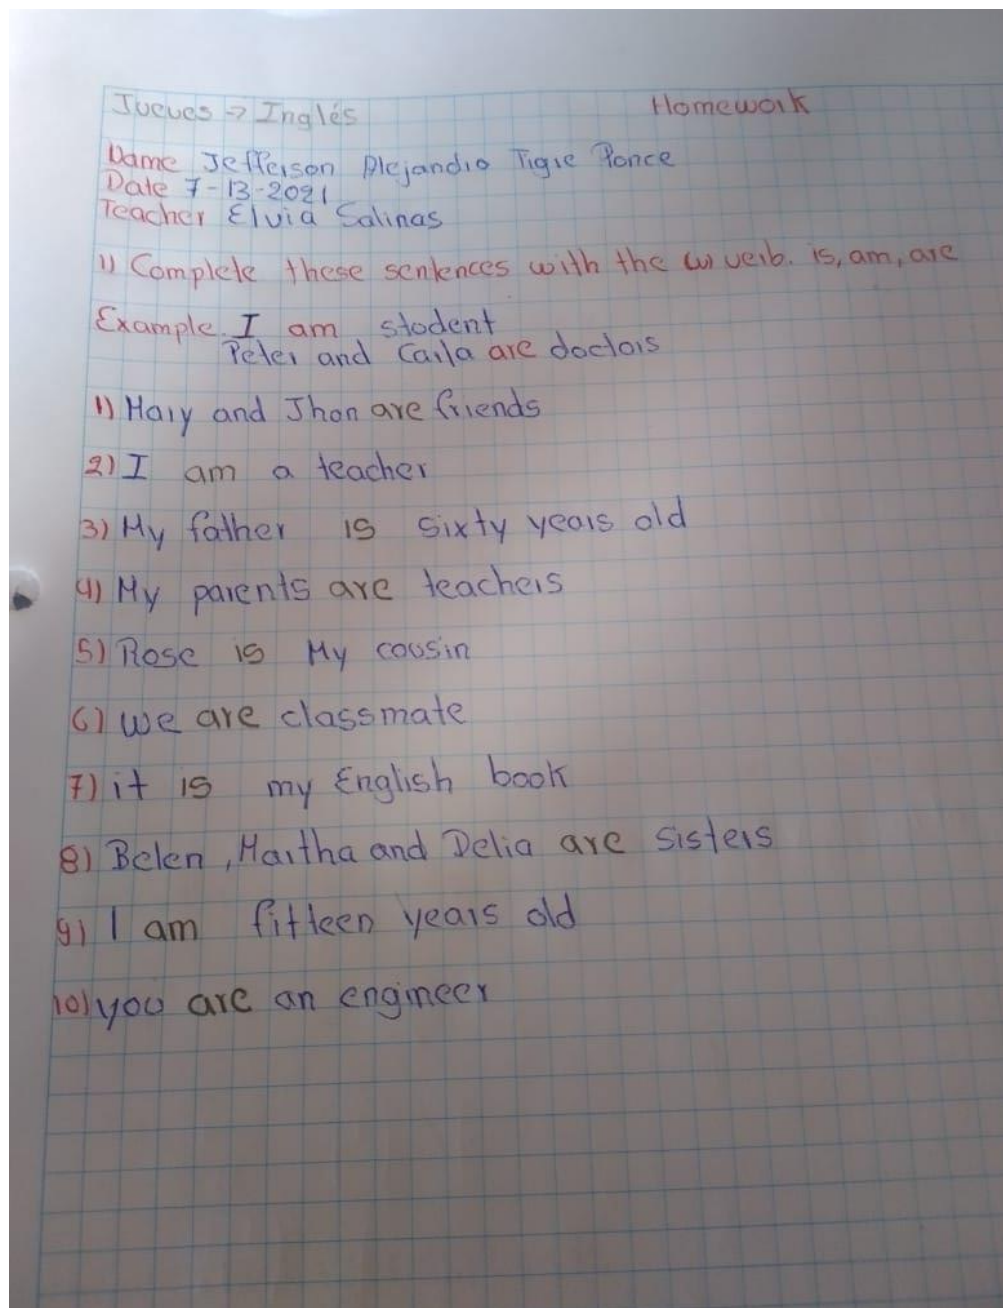 Jueves → Inglés
Homework
Name Jefferson Alejandro Tigre Ponce
Date 7-13-2021
Teacher Elvia Salinas
1) Complete these sentences with the verb. is, am, are
Example. I am student
Peter and Carla are doctors
1) Mary and Jhon are friends
2) I am a teacher
3) My father is sixty years old
4) My parents are teachers
5) Rose is My cousin
6) we are classmate
7) it is my English book
8) Belen, Martha and Delia are sisters
9) I am fifteen years old
10) you are an engineer